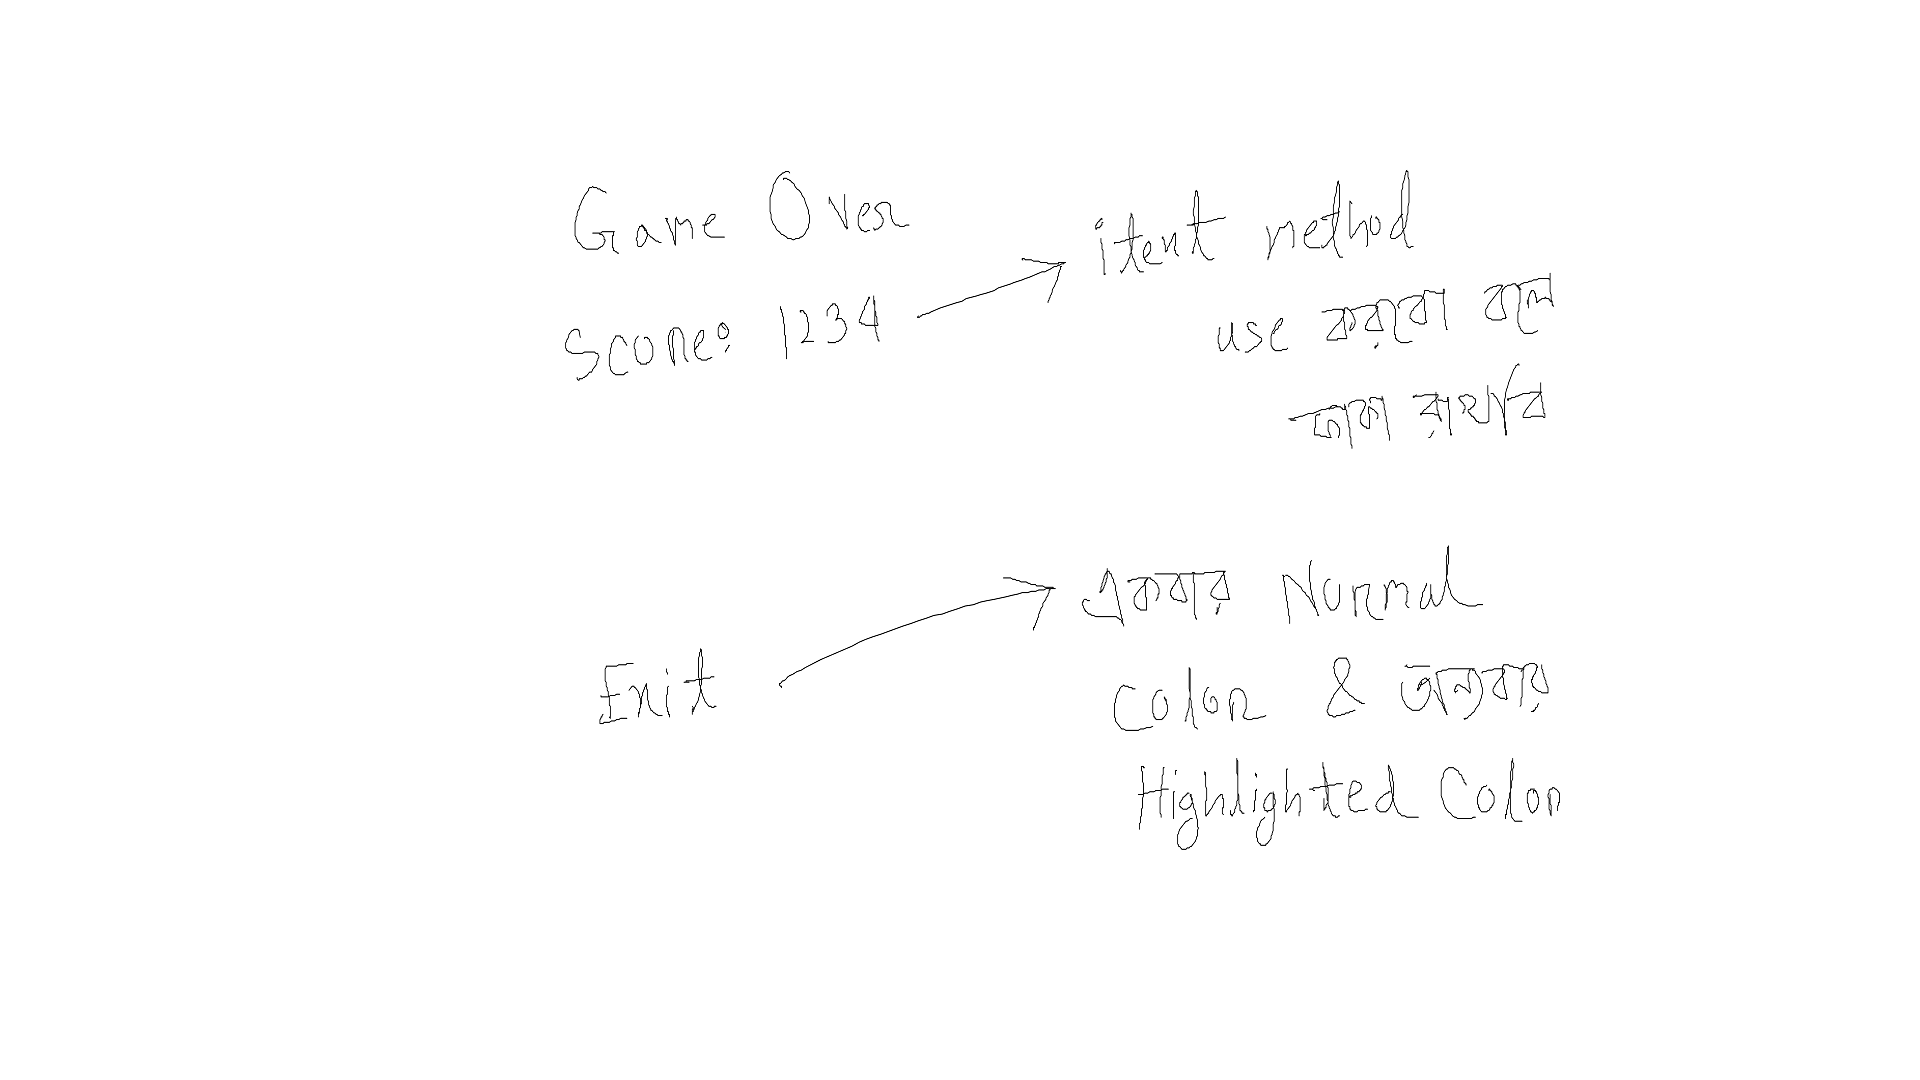 Game Over
Score: 1234
itext method
use করবো বলে
ফাকা রাখবি
Exit
একবার Normal
Color & অন্যবার
Highlighted Color